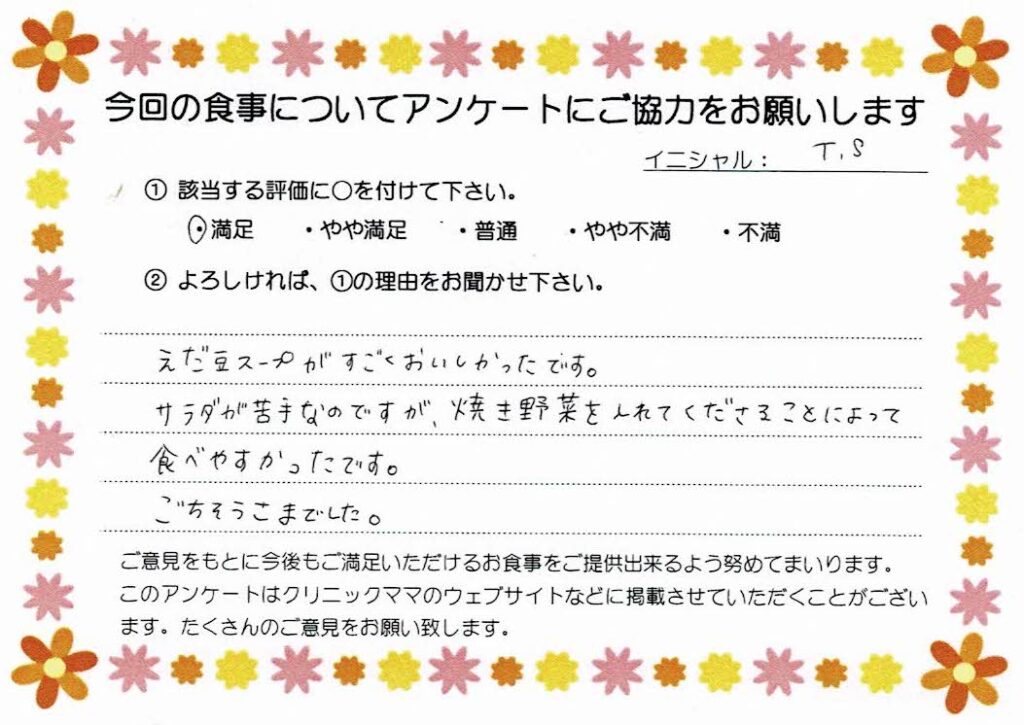 今回の食事についてアンケートにご協力をお願いします
イニシャル： T.S
① 該当する評価に〇を付けて下さい。
・満足 ・やや満足 ・普通 ・やや不満 ・不満
② よろしければ、①の理由をお聞かせ下さい。
えだ豆スープがすごくおいしかったです。
サラダが苦手なのですが、焼き野菜を入れてくださることによって
食べやすかったです。
ごちそうさまでした。
ご意見をもとに今後もご満足いただけるお食事をご提供出来るよう努めてまいります。
このアンケートはクリニックママのウェブサイトなどに掲載させていただくことがござい
ます。たくさんのご意見をお願い致します。